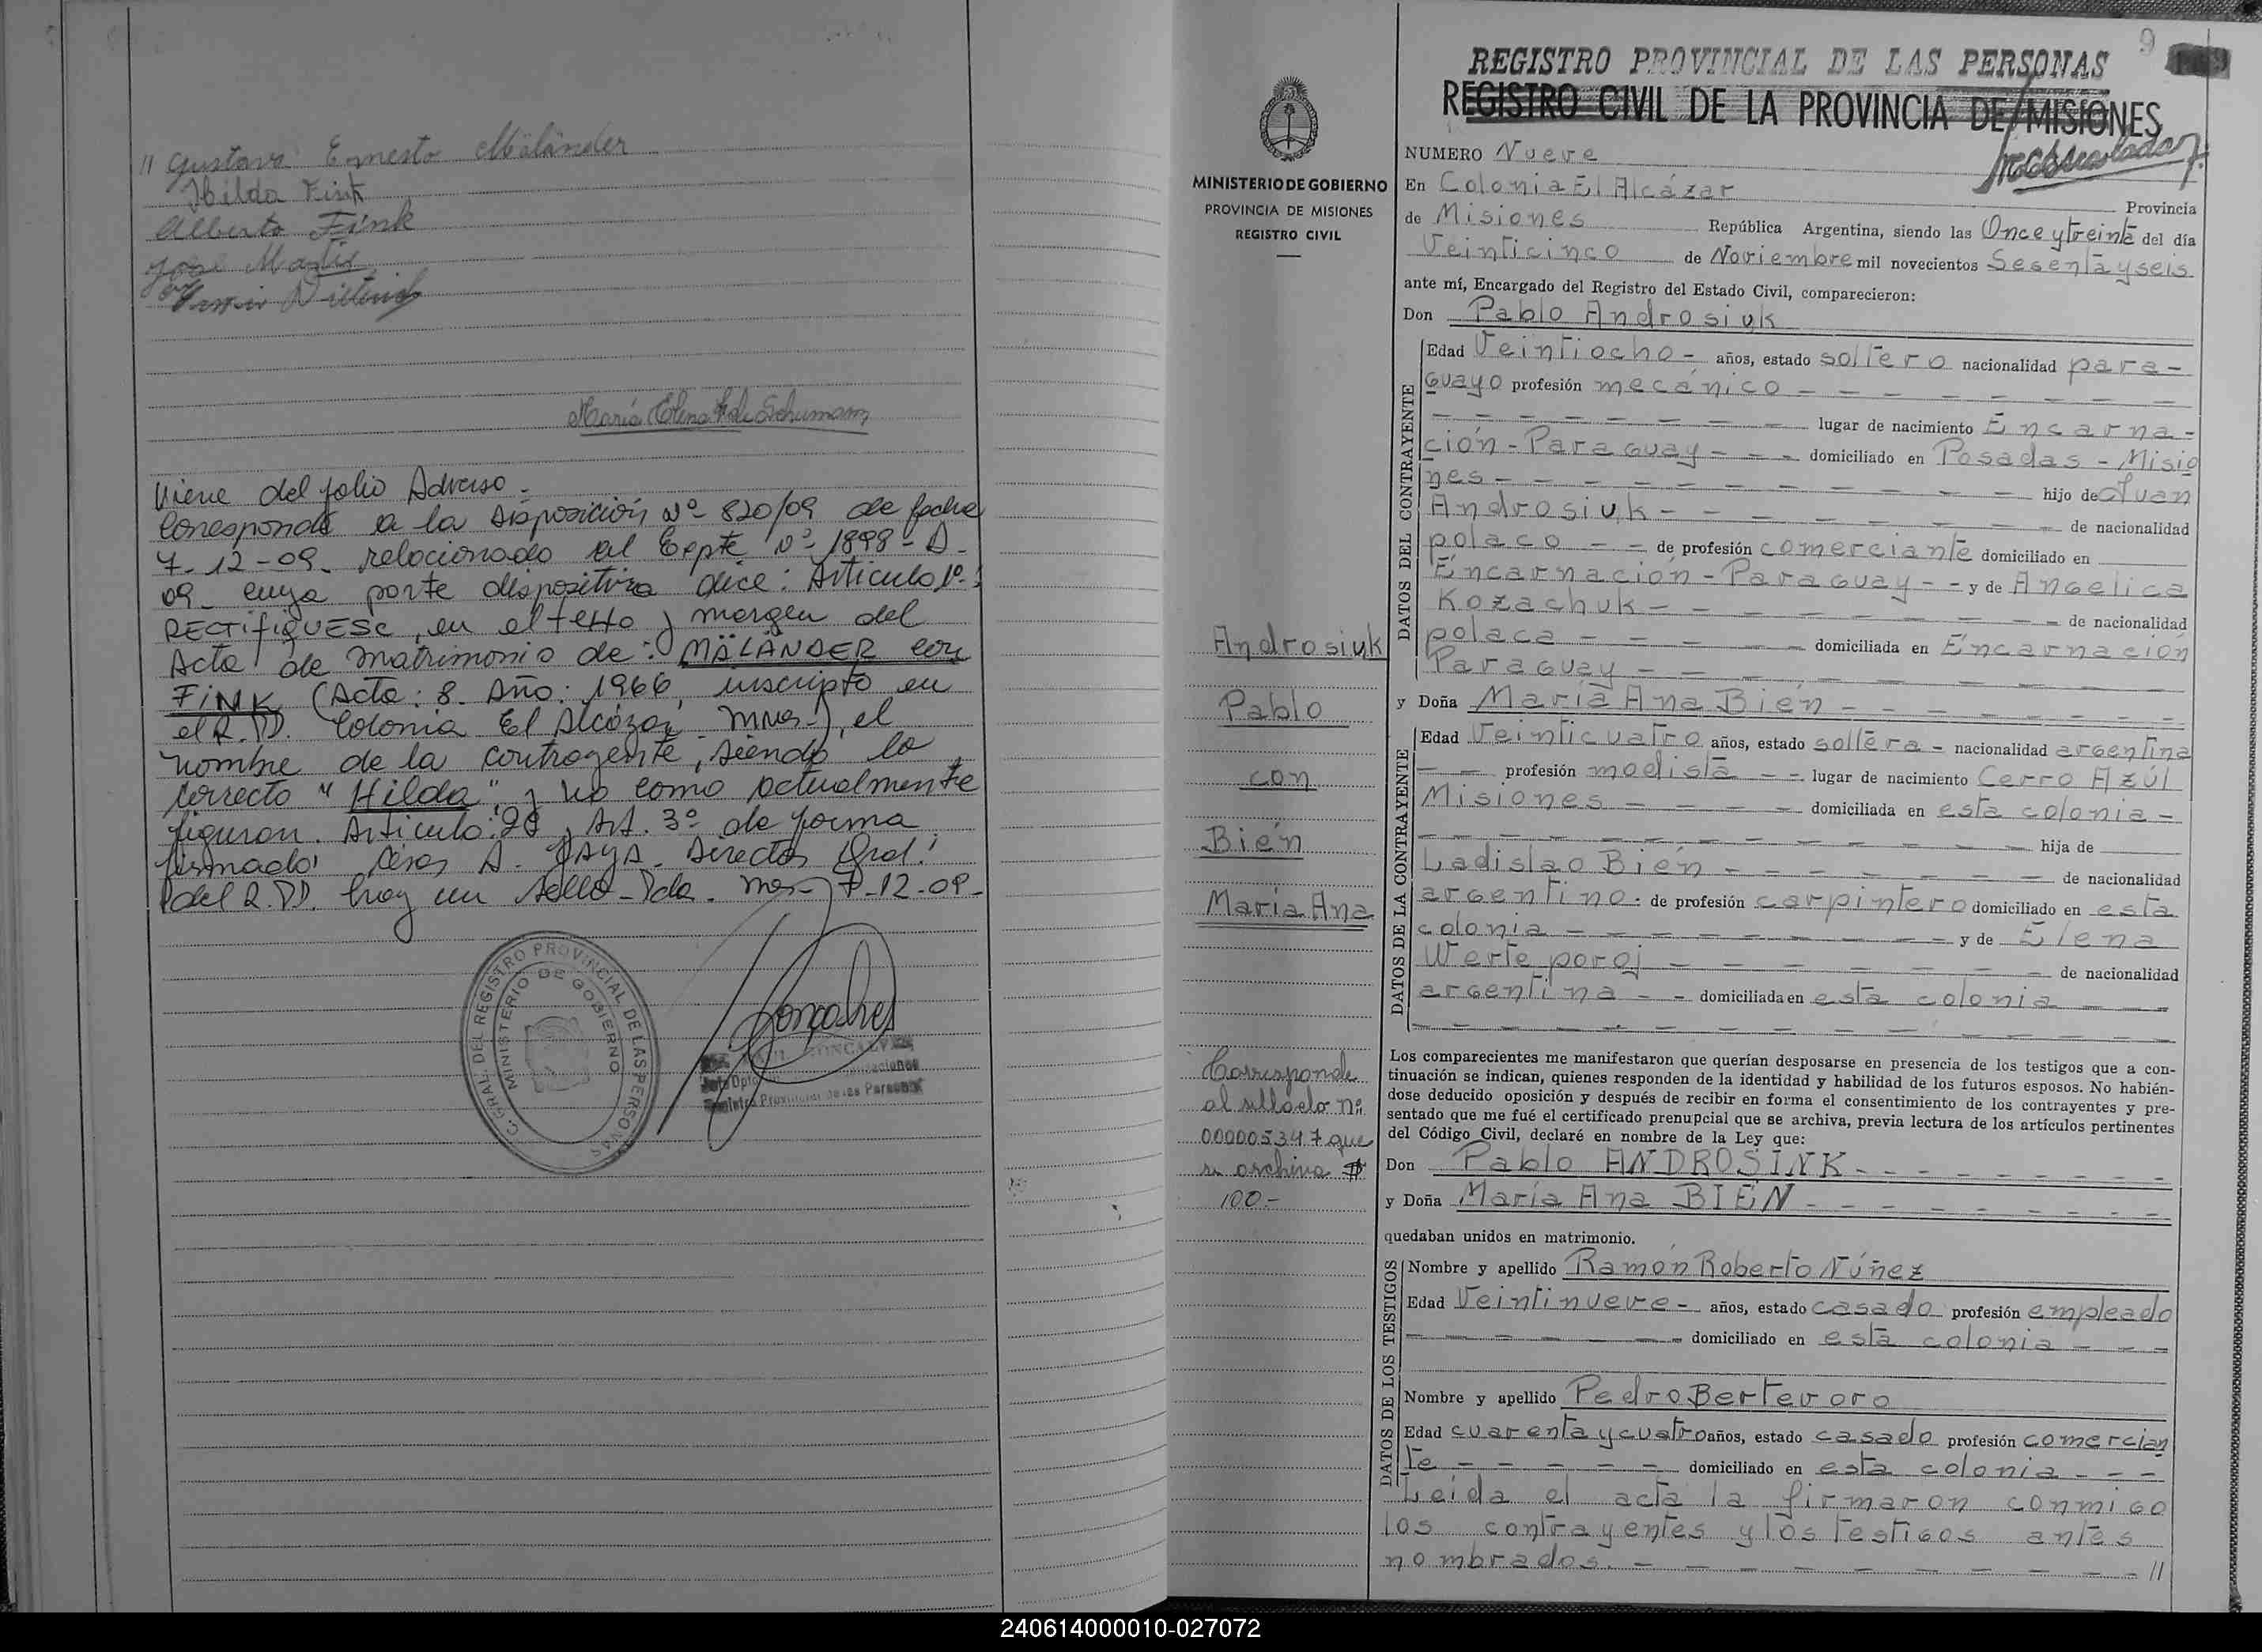 // Gustavo Ernesto Mäländer
Hilda Fink
Alberto Fink
José
María Elena de Schumann
Viene del folio Adverso -
Corresponde a la Disposición Nº 820/09 de fecha
7-12-09- relacionado al Expte Nº 1898-D-
09- cuya parte dispositiva dice: Artículo 1º:
RECTIFIQUESE, en el texto y margen del
Acta de matrimonio de: MÄLÄNDER con
FINK (Acta: 8. Año: 1966, inscripto en
el R.PP. Colonia El Alcázar, Mnes-), el
nombre de la contrayente, siendo lo
correcto "Hilda", y no como actualmente
figuran. Artículo: 2º y Art. 3º de forma
firmado A. Director Gral.
del R.PP. hay un sello- Pdas. Mnes- 7-12-09-
C. GRAL. DEL REGISTRO PROVINCIAL DE LAS PERSONAS
MINISTERIO DE GOBIERNO
GONCALVES
Jefe Dpto.
Registro Provincial de las Personas
9
REGISTRO PROVINCIAL DE LAS PERSONAS
REGISTRO CIVIL DE LA PROVINCIA DE MISIONES
MINISTERIO DE GOBIERNO
PROVINCIA DE MISIONES
REGISTRO CIVIL
Androsiuk
Pablo
con
Bién
María Ana
Corresponde
al sellado nº
000005347 que
se archiva $
100.-
NUMERO Nueve
En Colonia El Alcázar Provincia
de Misiones República Argentina, siendo las Once y treinta del día
Veinticinco de Noviembre mil novecientos Sesenta y seis
ante mí, Encargado del Registro del Estado Civil, comparecieron:
Don Pablo Androsiuk
DATOS DEL CONTRAYENTE
Edad Veintiocho - años, estado soltero nacionalidad para-
guayo profesión mecánico - - - - - - -
- - - - - - - lugar de nacimiento Encarna-
ción - Paraguay - - - domiciliado en Posadas - Misio
nes - - - - - - - - - - hijo de Juan
Androsiuk - - - - - - - - - de nacionalidad
polaco - - de profesión comerciante domiciliado en
Encarnación - Paraguay - - y de Angelica
Kozachuk - - - - - - - - - de nacionalidad
polaca - - - - - domiciliada en Encarnación
Paraguay - - - - - - - - - -
y Doña María Ana Bién - - - - - - - -
DATOS DE LA CONTRAYENTE
Edad Veinticuatro años, estado soltera - nacionalidad argentina
- - profesión modista - - lugar de nacimiento Cerro Azúl
Misiones - - - - domiciliada en esta colonia -
- - - - - - - - - - - hija de
Ladislao Bién - - - - - - - - de nacionalidad
argentino - de profesión carpintero domiciliado en esta
colonia - - - - - - - - - y de Elena
Werte poroj - - - - - - - de nacionalidad
argentina - - domiciliada en esta colonia - - -
- - - - - - - - - - - - - -
Los comparecientes me manifestaron que querían desposarse en presencia de los testigos que a con-
tinuación se indican, quienes responden de la identidad y habilidad de los futuros esposos. No habién-
dose deducido oposición y después de recibir en forma el consentimiento de los contrayentes y pre-
sentado que me fué el certificado prenupcial que se archiva, previa lectura de los artículos pertinentes
del Código Civil, declaré en nombre de la Ley que:
Don Pablo ANDROSINK - - - - - - -
y Doña María Ana BIÉN - - - - - - - - -
quedaban unidos en matrimonio.
DATOS DE LOS TESTIGOS
Nombre y apellido Ramón Roberto Núñez
Edad Veintinueve - años, estado casado profesión empleado
- - - - - - - domiciliado en esta colonia - - -
Nombre y apellido Pedro Bertevoro
Edad cuarenta y cuatro años, estado casado profesión comercian
te - - - - - - domiciliado en esta colonia - - -
Leída el acta la firmaron conmigo
los contrayentes y los testigos antes
nombrados. - - - - - - - - - - //
240614000010-027072